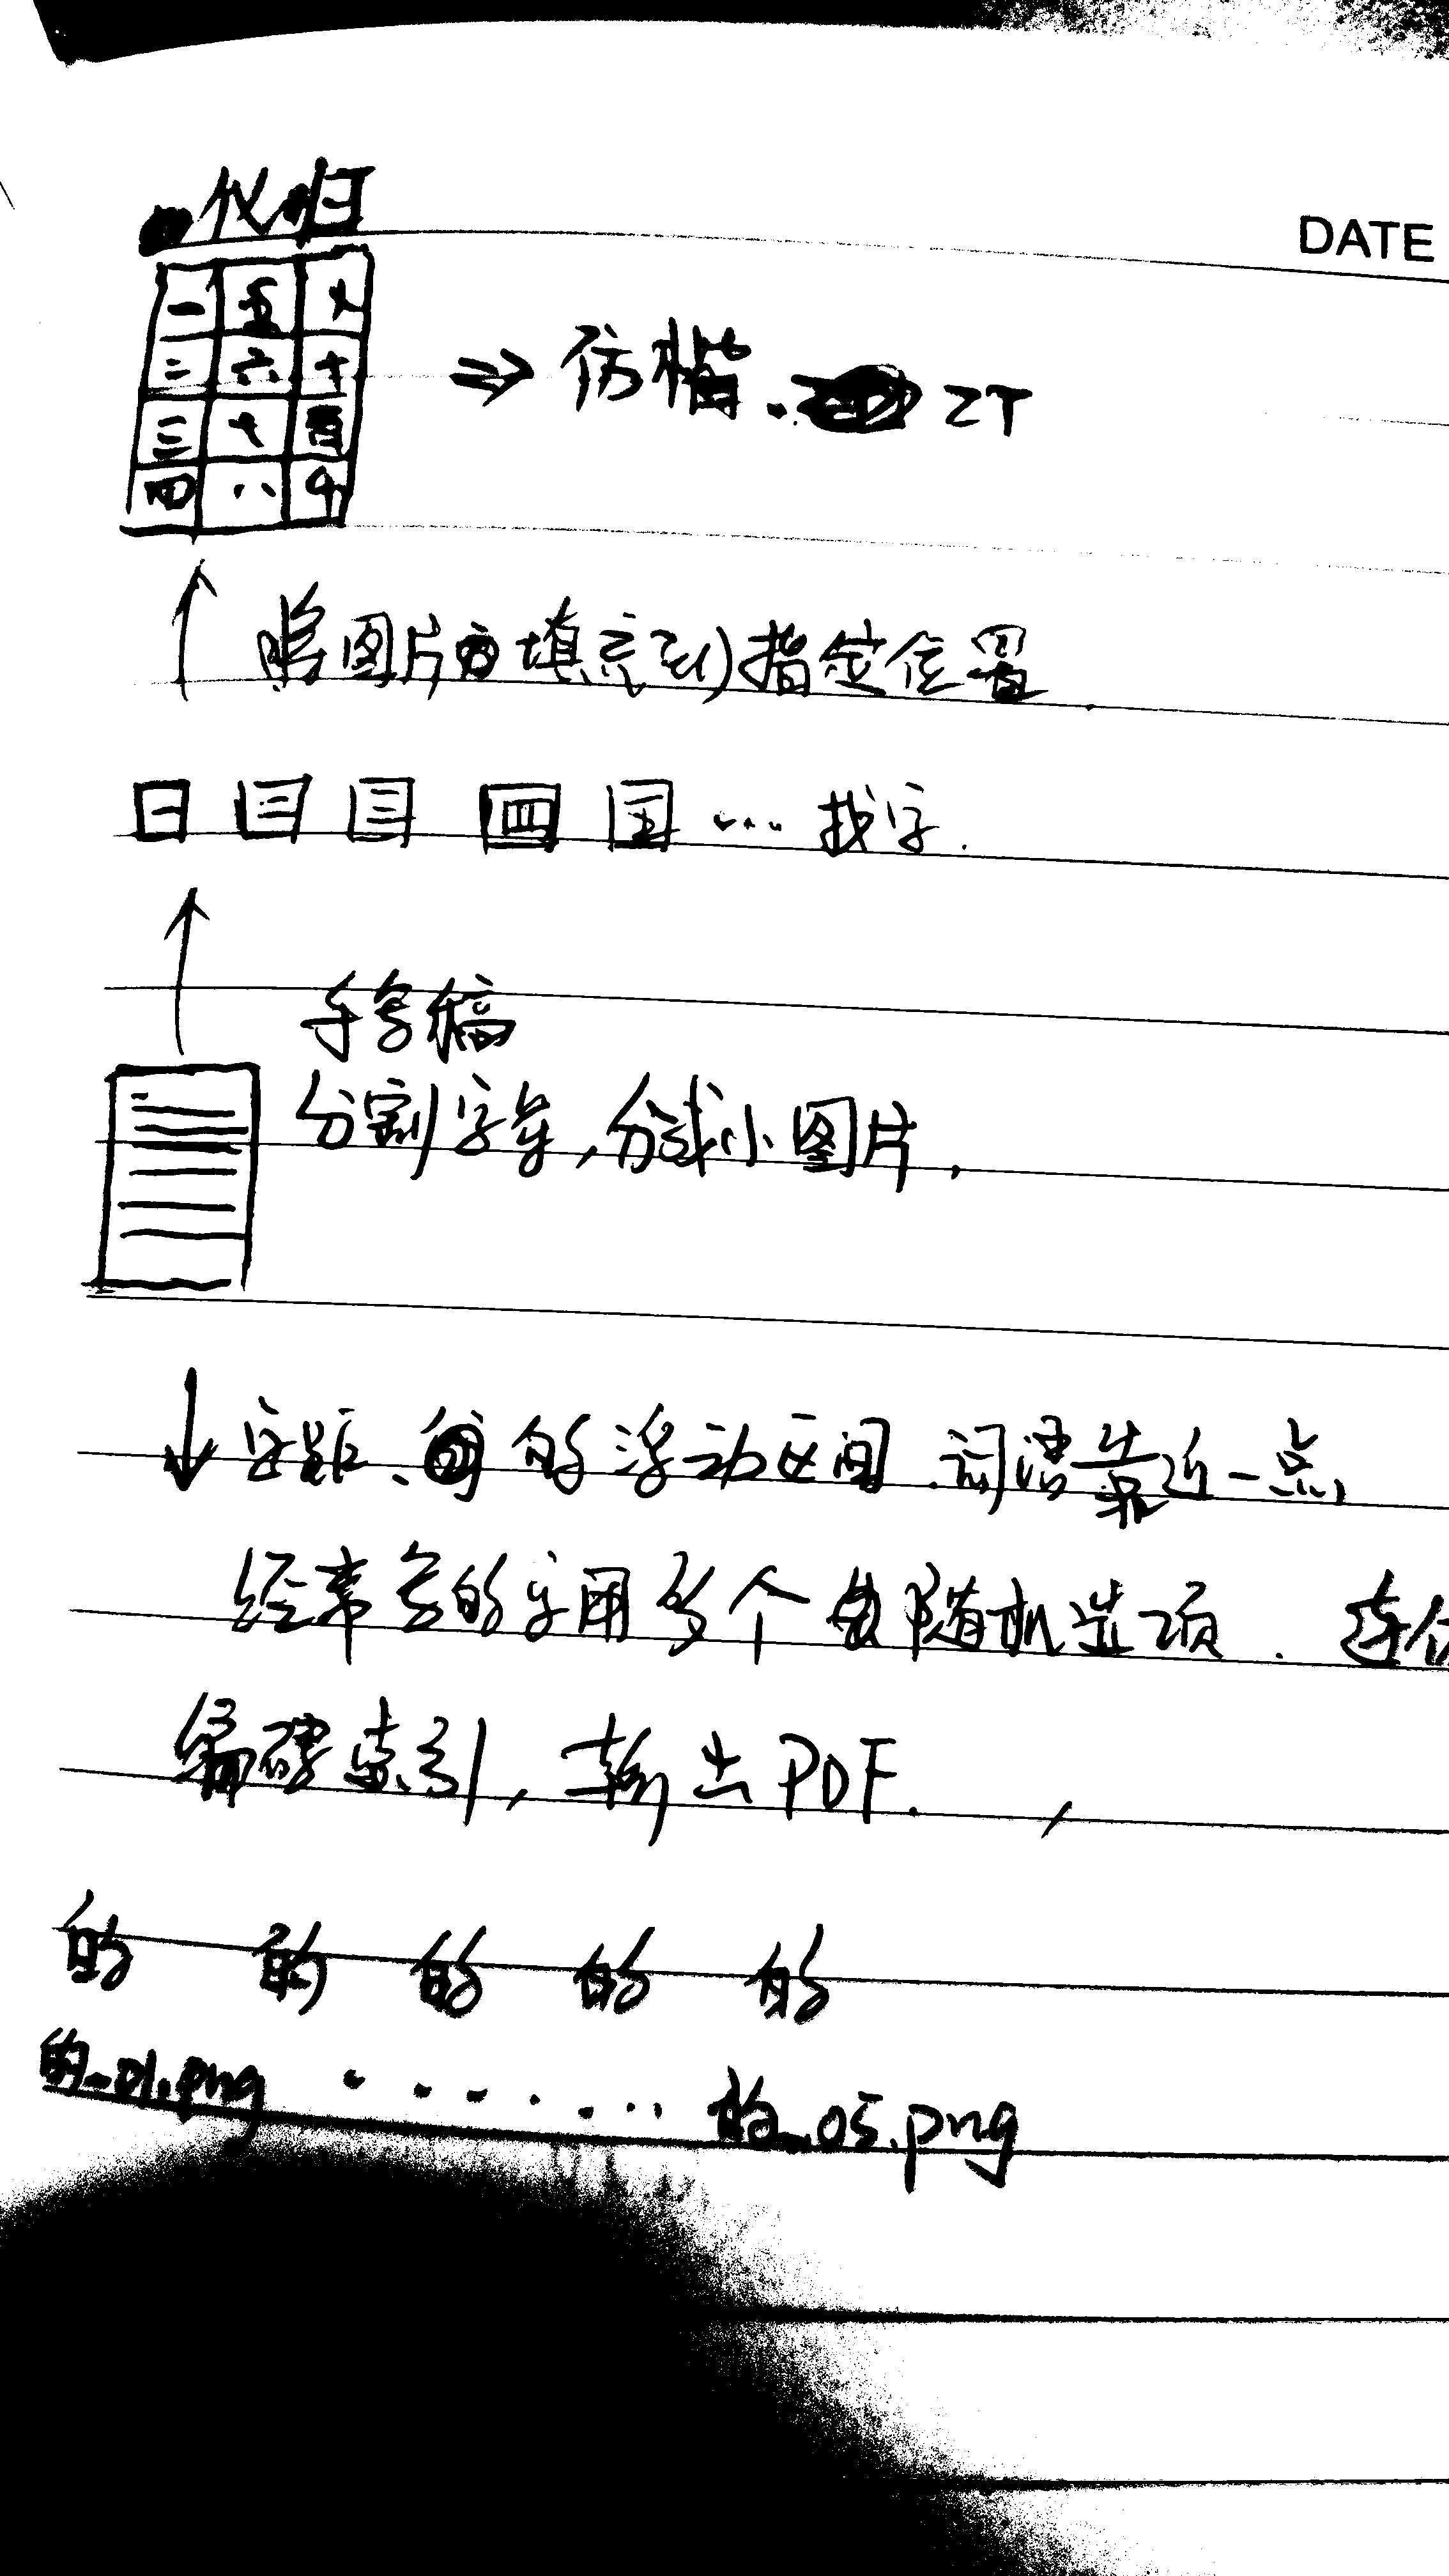 DATE
一 五 九
二 六 十
三 七 百
四 八 个
⇒ 仿楷. ZT
将图片填充到指定位置.
一 二 三 四 五 … 找字.
手写稿
分割字符,分成小图片,
字距、的浮动区间.词语靠近一点,
经常写的字用多个做随机选项.
编码索引,输出PDF.
的 的 的 的 的
的_01.png ······ 的_05.png